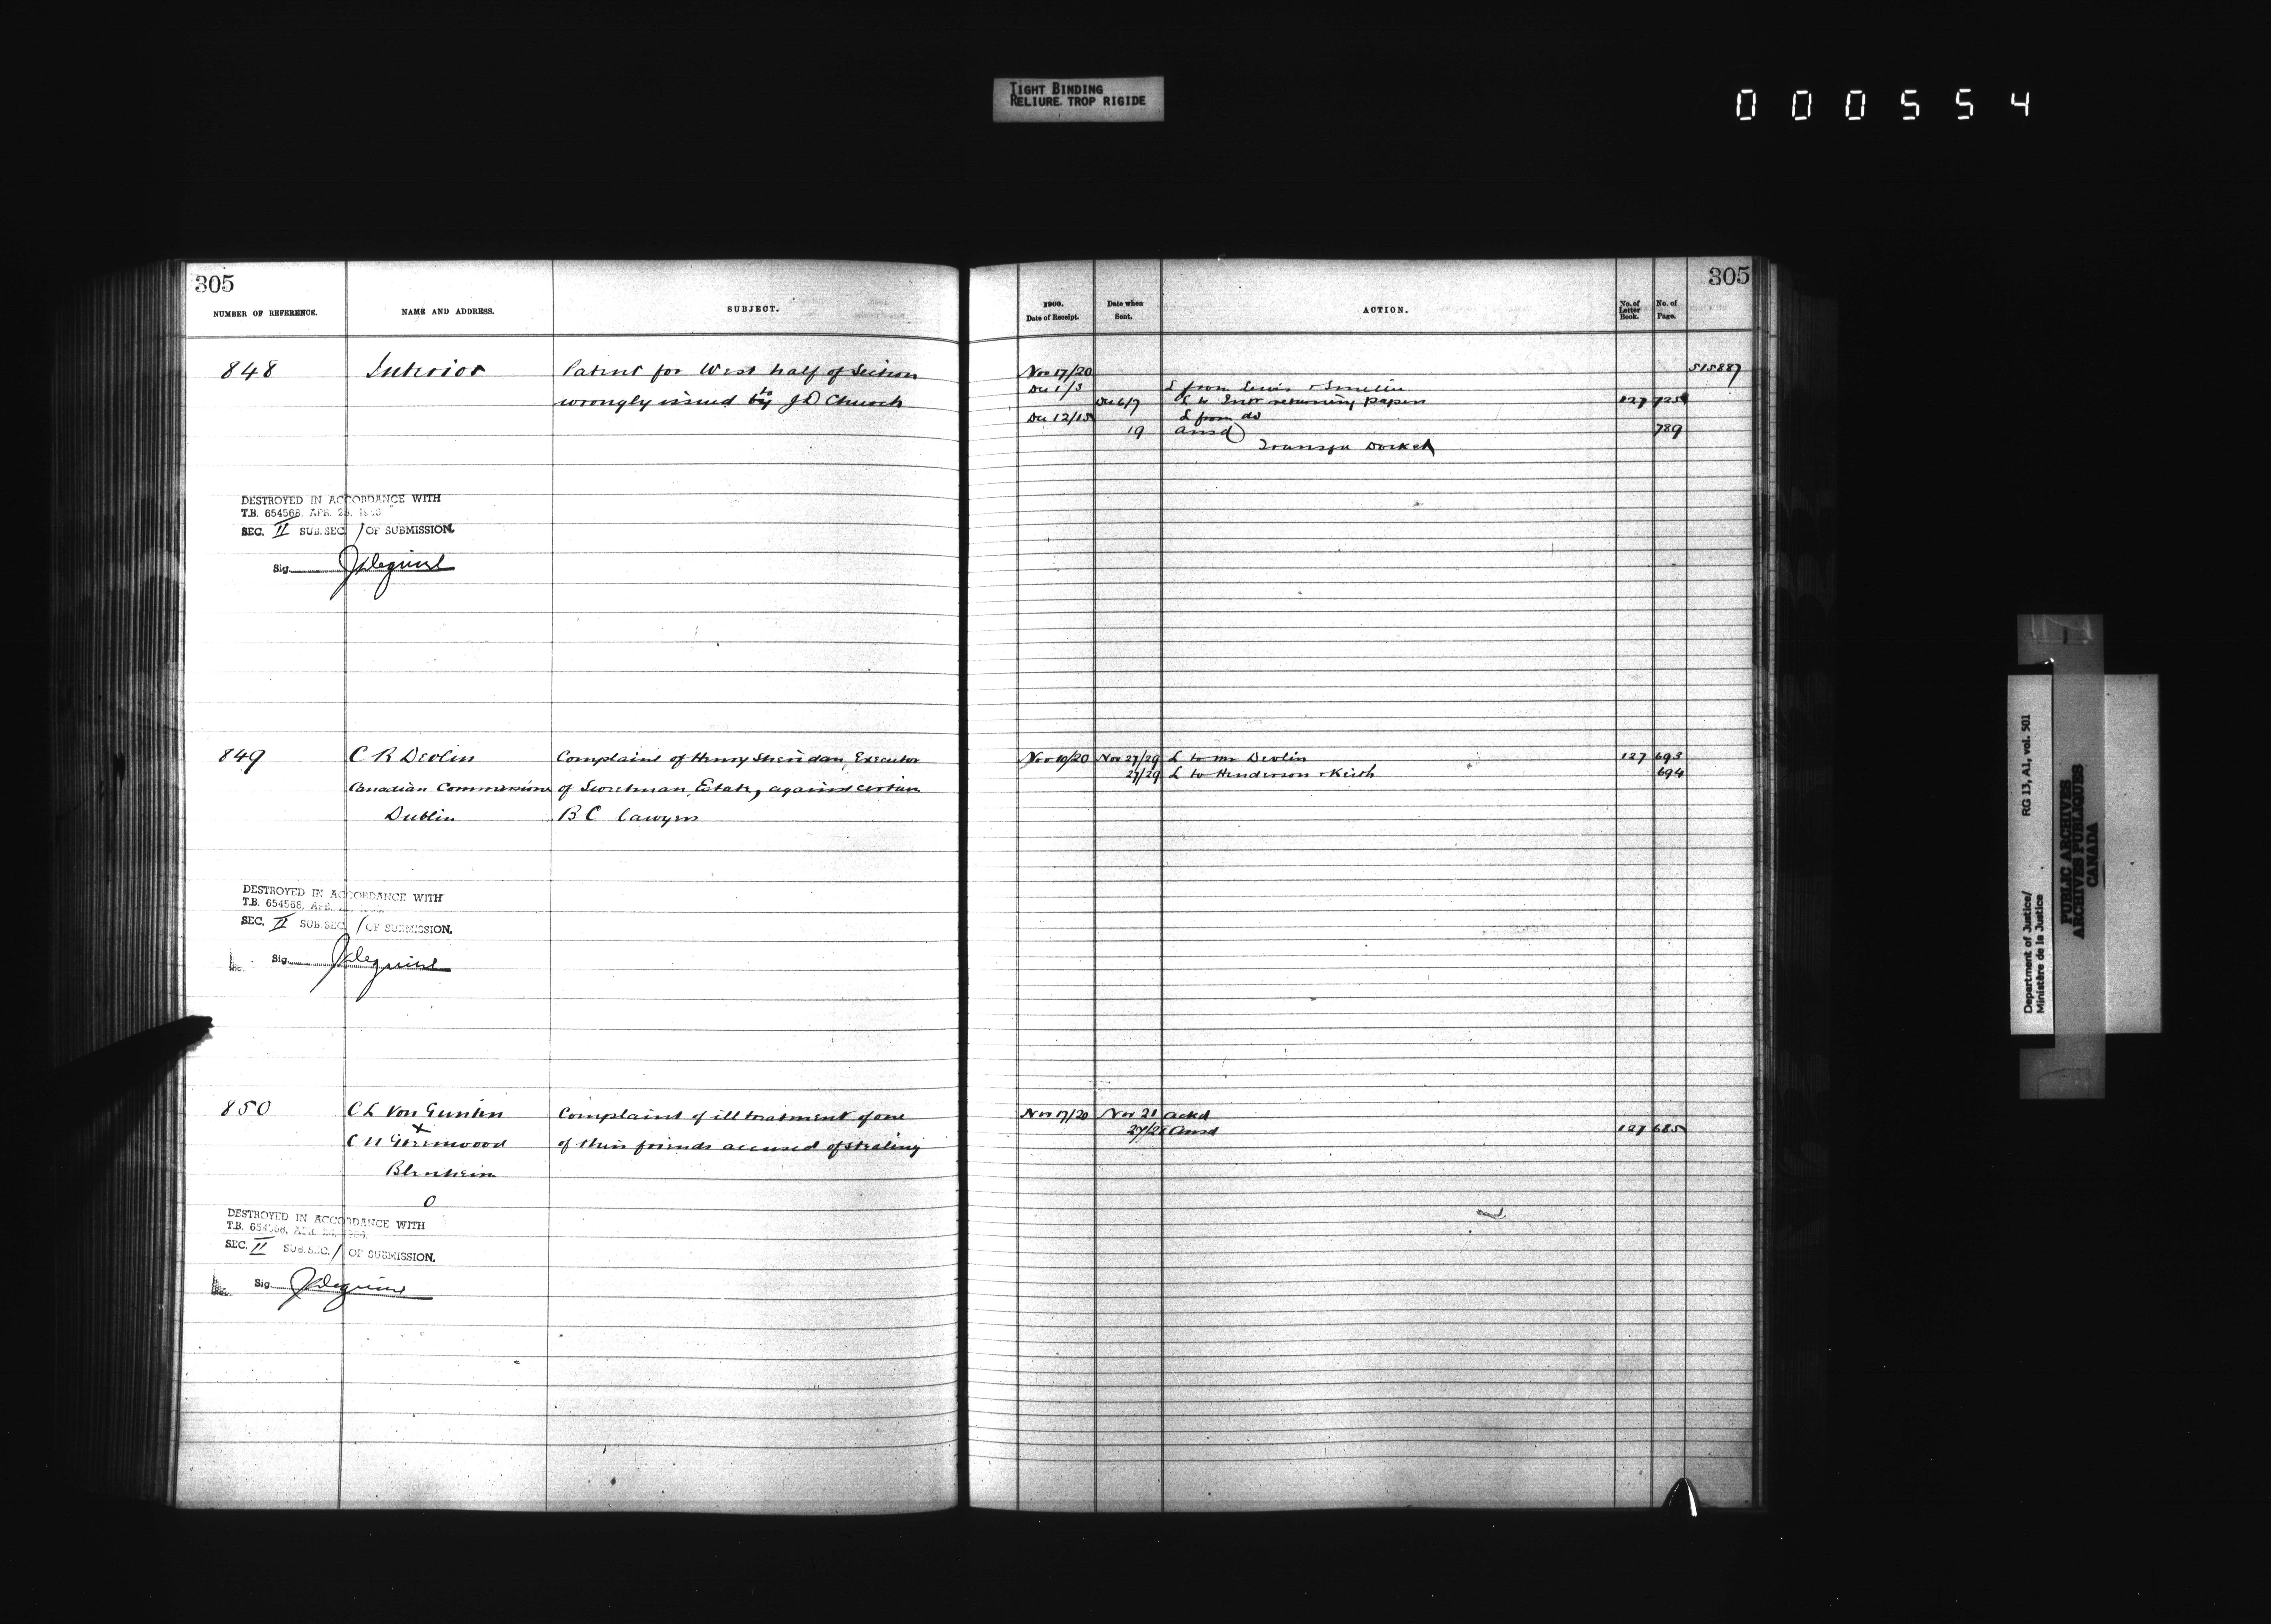 TIGHT BINDING
RELIURE TROP RIGIDE
000554
305
NUMBER OF REFERENCE.
NAME AND ADDRESS.
SUBJECT.
848
Interior
Patent for West half of Section
wrongly issued by to J D Church
DESTROYED IN ACCORDANCE WITH
T.B. 654568, APR. 26,
SEC. II SUB. SEC. 1 OF SUBMISSION.
Sig.
849
C R Devlin
Complaint of Henry Sheridan, Executor
Canadian Commissioner
of Estate, against certain
Dublin
B C Lawyers
DESTROYED IN ACCORDANCE WITH
T.B. 654568, APR.
SEC. II SUB. SEC. 1 OF SUBMISSION.
Sig.
850
C L Von Gunten
Complaint of illtreatment of one
+
C H Greenwood
of their friends accused of stealing
Blenheim
O
DESTROYED IN ACCORDANCE WITH
T.B. 654568, APR.
SEC. II SUB. SEC. 1 OF SUBMISSION.
Sig.
305
1900.
Date of Receipt.
Date when
Sent.
ACTION.
No. of
Letter
Book.
No. of
Page.
Nov 17/20
515887
Dec 1/3
L from Lewis & Smellie
Dec 6/7
L to Intr returning papers
127
725
Dec 12/15
L from do
19
ansd
789
Transfer Docket
Nov 19/20
Nov 27/29
L to Mr Devlin
127
693
27/29
L to Henderson & Keith
694
Nov 17/20
Nov 21
ackd
ansd
127
685
Department of Justice/
Ministère de la Justice
RG 13, A1, vol. 501
PUBLIC ARCHIVES
ARCHIVES PUBLIQUES
CANADA